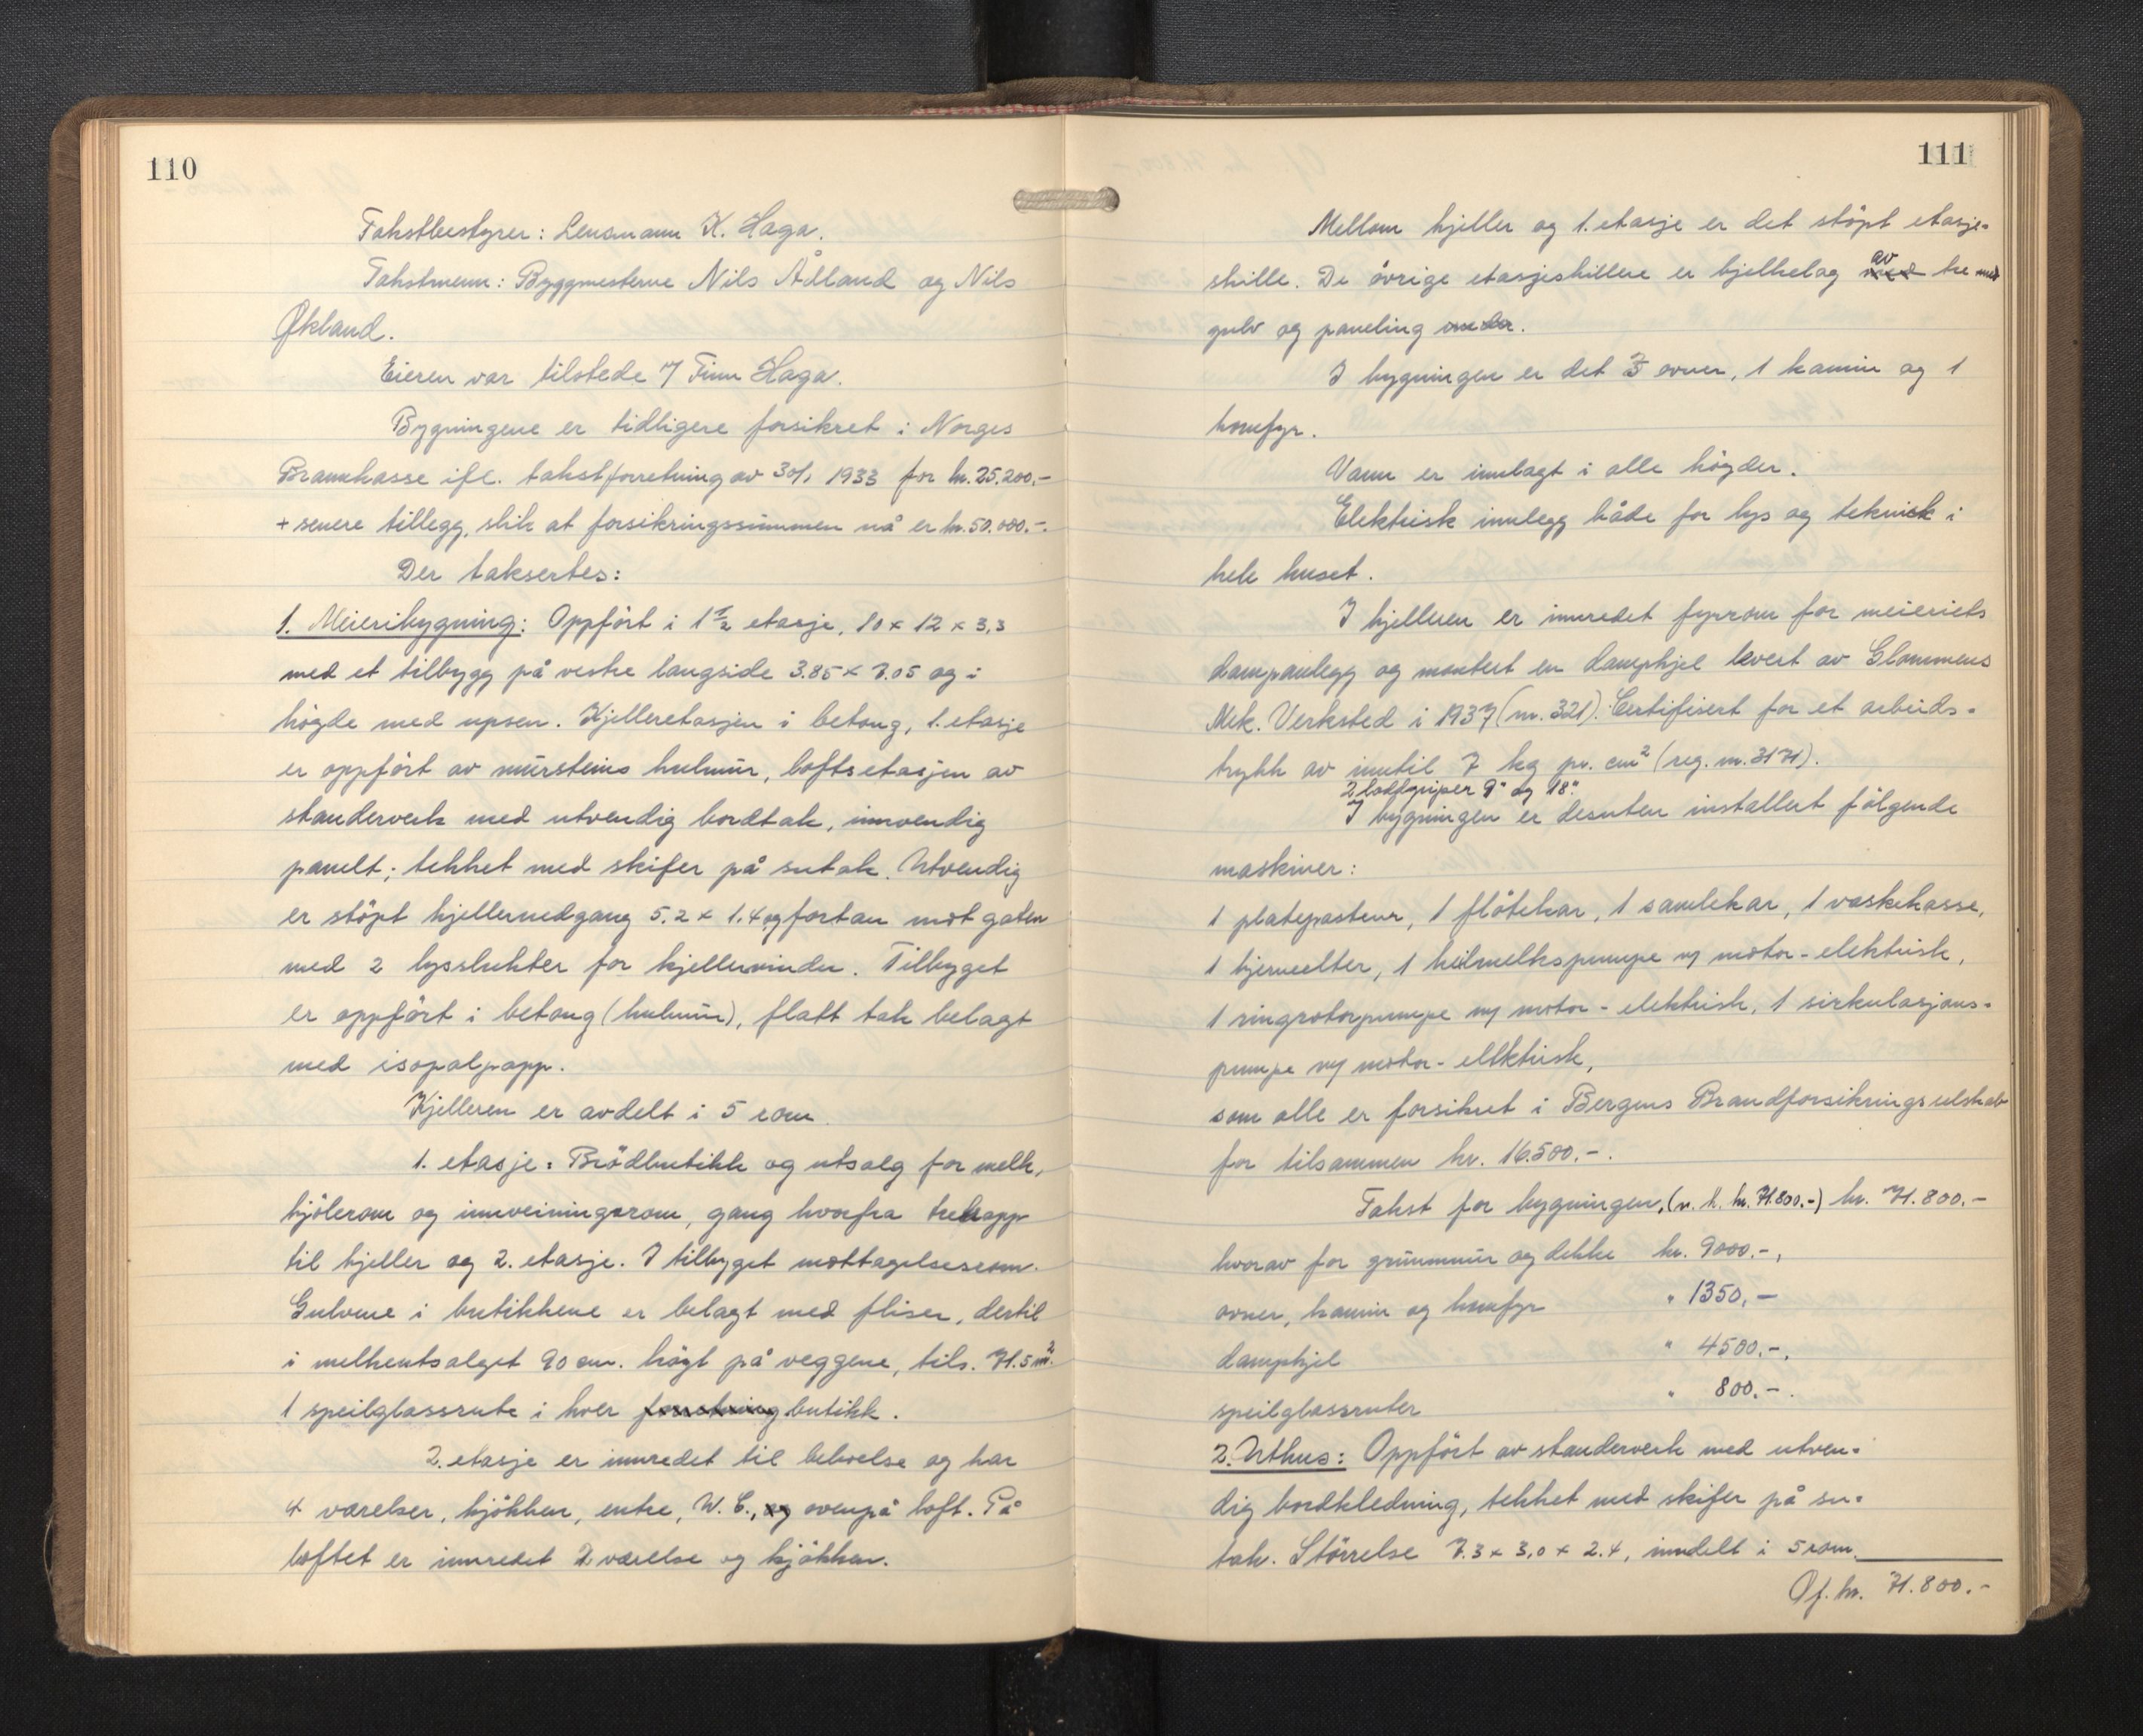 110
Takstbestyrer: Lensmann K. Haga.
Takstmenn: Byggmesterne Nils Ådland og Nils
Økland.
Eieren var tilstede v/ Finn Haga.
Bygningene er tidligere forsikret i Norges
Brannkasse ifl. takstforretning av 30/1 1933 for kr. 25.200.-
+ senere tillegg, slik at forsikringssummen nå er kr. 50.000.-.
Der taksertes:
1. Meieribygning: Oppfört i 1 1/2 etasje, 10 x 12 x 3,3
med et tilbygg på vestre langside 3.85 x 7.05 og i
högde med upsen. Kjelleretasjen i betong, 1. etasje
er oppfört av mursteins hulmur, loftsetasjen av
standerverk med utvendig bordtak, innvendig
panelt; tekket med skifer på sutak. Utvendig
er stöpt kjellernedgang 5.2 x 1.4 og fortau mot gaten
med 2 lysslukter for kjellervindu. Tilbygget
er oppfört i betong (hulmur), flatt tak belagt
med isopalpapp.
Kjelleren er avdelt i 5 rom.
1. etasje: Brödbutikk og utsalg for melk,
kjölerom og innveiningsrom, gang hvorfra trekapp
til kjeller og 2. etasje. I tilbygget mottagelsesrom.
Gulvene i butikkene er belagt med fliser, dertil
i melkeutsalget 90 cm. högt på veggene, tils. 71.5 m².
1 speilglassrute i hver forretning butikk.
2. etasje er innredet til beboelse og har
4 værelser, kjökken, entre, W.C., og ovenpå loft. På
loftet er innredet 2 værelse og kjökken.
111
Mellom kjeller og 1. etasje er det stöpt etasje-
skille. De övrige etasjeskillene er bjelkelag med av tre med
gulv og paneling under.
I bygningen er det 3 ovner, 1 kamin og 1
komfyr.
Vann er innlagt i alle högder.
Elektrisk innlegg både for lys og teknisk i
hele huset.
I kjelleren er innredet fyrrom for meieriets
dampanlegg og montert en dampkjel levert av Glommens
Mek. Verksted i 1937 (nr. 321). Certifisert for et arbeids-
trykk av inntil 7 kg pr. cm² (reg. nr. 3171).
2 9" og 18".
I bygningen er desuten installert fölgende
maskiner:
1 platepasteur, 1 flötekar, 1 samlekar, 1 vaskekasse,
1 kjerneelter, 1 helmelkspumpe m/ motor - elektrisk,
1 ringrotorpumpe m/ motor - elektrisk, 1 sirkulasjons-
pumpe m/ motor - elektrisk,
som alle er forsikret i Bergens Brandforsikringsselskab
for tilsammen kr. 16.500.-.
Takst for bygningen, (v. t. kr. 71.800.-) kr. 71.800.-
hvorav for grunnmur og dekke kr. 9000.-,
ovner, kamin og komfyr " 1350,-
dampkjel " 4500.-,
speilglassruter " 800.-.
2. Uthus: Oppfört av standerverk med utven-
dig bordkledning, tekket med skifer på su-
tak. Störrelse 7.3 x 3,0 x 2.4, inndelt i 5 rom.
Of. kr. 71.800.-